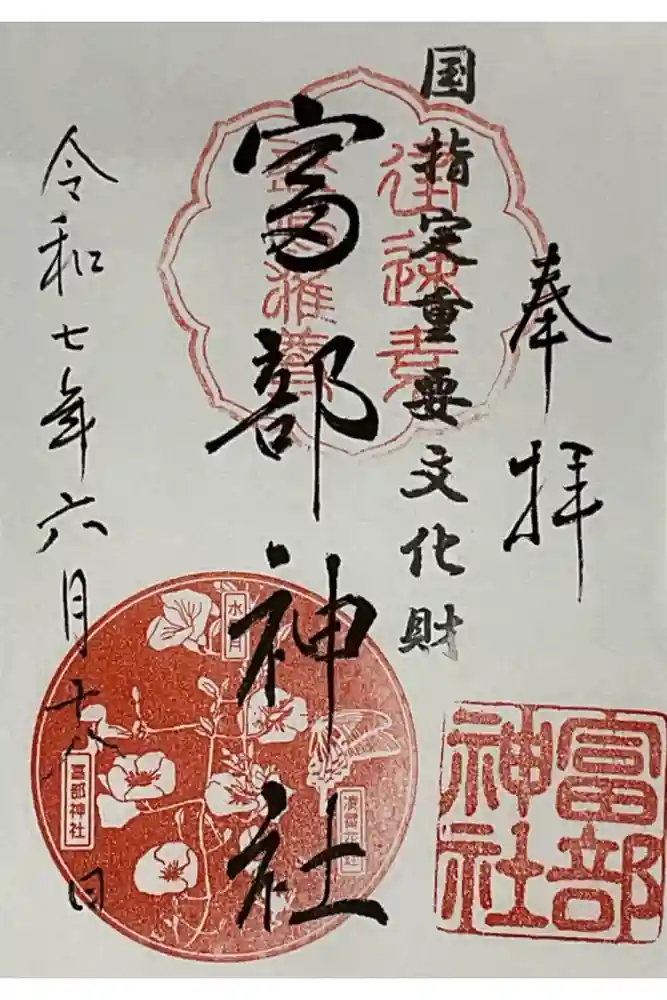 奉拝
国指定重要文化財
富部神社
令和七年六月十八日
富部神社
水無月
富部神社
凌霄花